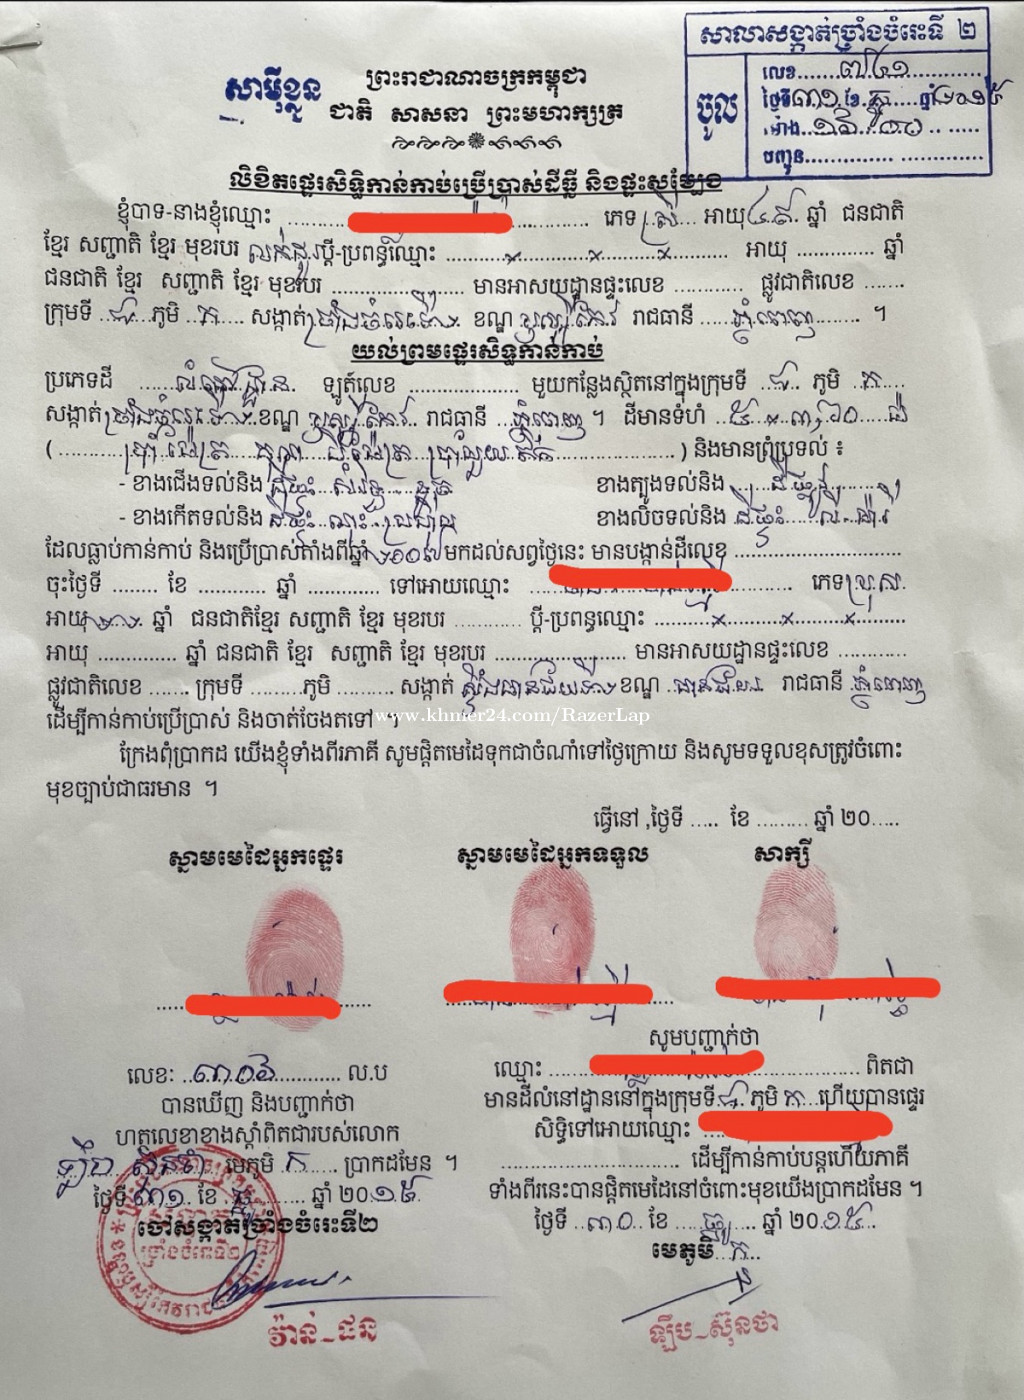 សាលាសង្កាត់ច្រាំងចំរេះទី ២
ចូល
លេខ ៧៤១
ថ្ងៃទី ៣១ ខែ ធ្នូ ឆ្នាំ ២០១៥
ម៉ោង
បញ្ជូន
សាម៉ីខ្លួន
ព្រះរាជាណាចក្រកម្ពុជា
ជាតិ សាសនា ព្រះមហាក្សត្រ
លិខិតផ្ទេរសិទ្ធិកាន់កាប់ប្រើប្រាស់ដីធ្លី និងផ្ទះសម្បែង
ខ្ញុំបាទ-នាងខ្ញុំឈ្មោះ ភេទ ស្រី អាយុ ៤៩ ឆ្នាំ ជនជាតិ
ខ្មែរ សញ្ជាតិ ខ្មែរ មុខរបរ លក់ដូរ ប្ដី-ប្រពន្ធឈ្មោះ × × × អាយុ ឆ្នាំ
ជនជាតិ ខ្មែរ សញ្ជាតិ ខ្មែរ មុខរបរ មានអាសយដ្ឋានផ្ទះលេខ ផ្លូវជាតិលេខ
ក្រុមទី ៤ ភូមិ ក សង្កាត់ ច្រាំងចំរេះទី២ ខណ្ឌ ឫស្សីកែវ រាជធានី ភ្នំពេញ ។
យល់ព្រមផ្ទេរសិទ្ធកាន់កាប់
ប្រភេទដី លំនៅដ្ឋាន ឡូត៍លេខ មួយកន្លែងស្ថិតនៅក្នុងក្រុមទី ៤ ភូមិ ក
សង្កាត់ ច្រាំងចំរេះទី២ ខណ្ឌ ឫស្សីកែវ រាជធានី ភ្នំពេញ ។ ដីមានទំហំ ៥ × ៣,៦០ ម៉
( ប្រាំម៉ែត្រ គុណ បីម៉ែត្រ ) និងមានព្រំប្រទល់ ៖
- ខាងជើងទល់និង ដីផ្ទះ ខាងត្បូងទល់និង ដីផ្លូវ
- ខាងកើតទល់និង ដីផ្ទះ ខាងលិចទល់និង ដីផ្ទះ
ដែលធ្លាប់កាន់កាប់ និងប្រើប្រាស់តាំងពីឆ្នាំ ២០០៧ មកដល់សព្វថ្ងៃនេះ មានបង្កាន់ដៃលេខ
ចុះថ្ងៃទី ខែ ឆ្នាំ ទៅអោយឈ្មោះ ភេទ ប្រុស
អាយុ ឆ្នាំ ជនជាតិខ្មែរ សញ្ជាតិ ខ្មែរ មុខរបរ ប្ដី-ប្រពន្ធឈ្មោះ × × ×
អាយុ ឆ្នាំ ជនជាតិ ខ្មែរ សញ្ជាតិ ខ្មែរ មុខរបរ មានអាសយដ្ឋានផ្ទះលេខ
ផ្លូវជាតិលេខ ក្រុមទី ភូមិ សង្កាត់ ស្ទឹងមានជ័យ ខណ្ឌ មានជ័យ រាជធានី ភ្នំពេញ
ដើម្បីកាន់កាប់ប្រើប្រាស់ និងចាត់ចែងតទៅ ។
www.khmer24.com/RazerLap
ក្រែងពុំប្រាកដ យើងខ្ញុំទាំងពីរភាគី សូមផ្ដិតមេដៃទុកជាចំណាំទៅថ្ងៃក្រោយ និងសូមទទួលខុសត្រូវចំពោះ
មុខច្បាប់ជាធរមាន ។
ធ្វើនៅ ,ថ្ងៃទី ខែ ឆ្នាំ ២០
ស្នាមមេដៃអ្នកផ្ទេរ ស្នាមមេដៃអ្នកទទួល សាក្សី
លេខៈ ៣០៦ ល.ប
បានឃើញ និងបញ្ជាក់ថា
ហត្ថលេខាខាងស្ដាំពិតជារបស់លោក
ឡឹប ស៊ុនថា មេភូមិ ក ប្រាកដមែន ។
ថ្ងៃទី ៣១ ខែ ធ្នូ ឆ្នាំ ២០១៥
ចៅសង្កាត់ច្រាំងចំរេះទី២
ច្រាំងចំរេះទី២
វ៉ាន់-ជន
សូមបញ្ជាក់ថា
ឈ្មោះ ពិតជា
មានដីលំនៅដ្ឋាននៅក្នុងក្រុមទី ៤ ភូមិ ក ហើយបានផ្ទេរ
សិទ្ធិទៅអោយឈ្មោះ
ដើម្បីកាន់កាប់បន្តហើយភាគី
ទាំងពីរនេះបានផ្ដិតមេដៃនៅចំពោះមុខយើងប្រាកដមែន ។
ថ្ងៃទី ៣០ ខែ ធ្នូ ឆ្នាំ ២០១៥
មេភូមិ ក
ឡឹប-ស៊ុនថា